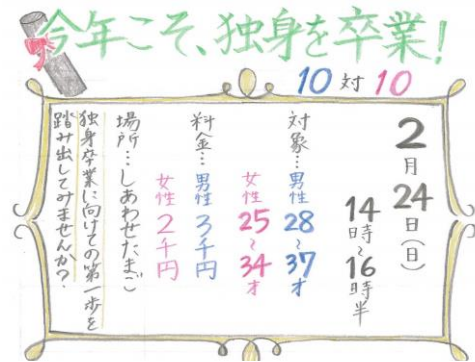 今年こそ、独身を卒業!
10対10
2月24日(日)
14時~16時半
対象…男性28~37才
女性25~34才
料金…男性3千円
女性2千円
場所…しあわせたまご
独身卒業に向けての第一歩を
踏み出してみませんか?